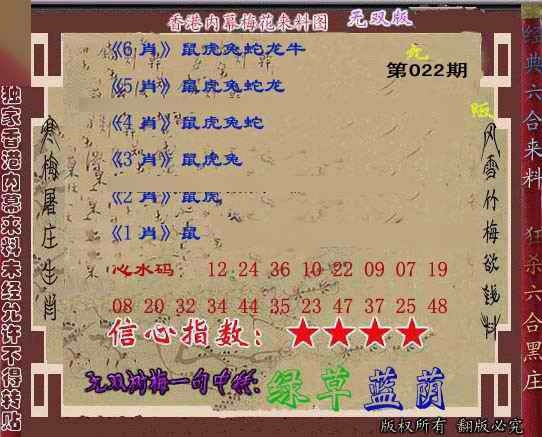 香港内幕梅花来料图 无双版
《6 肖》鼠虎兔蛇龙牛
第022期
《5 肖》鼠虎兔蛇龙
《4 肖》鼠虎兔蛇
《3 肖》鼠虎兔
《2 肖》鼠虎
《1 肖》鼠
心水码： 12 24 36 10 22 09 07 19
08 20 32 34 44 35 23 47 37 25 48
信心指数：★★★★
绿草蓝荫
版权所有 翻版必究
独家香港内幕来料未经允许不得转贴
寒梅屠庄生肖
风雪竹梅欲钱料
经典六合来料 狂杀六合黑庄